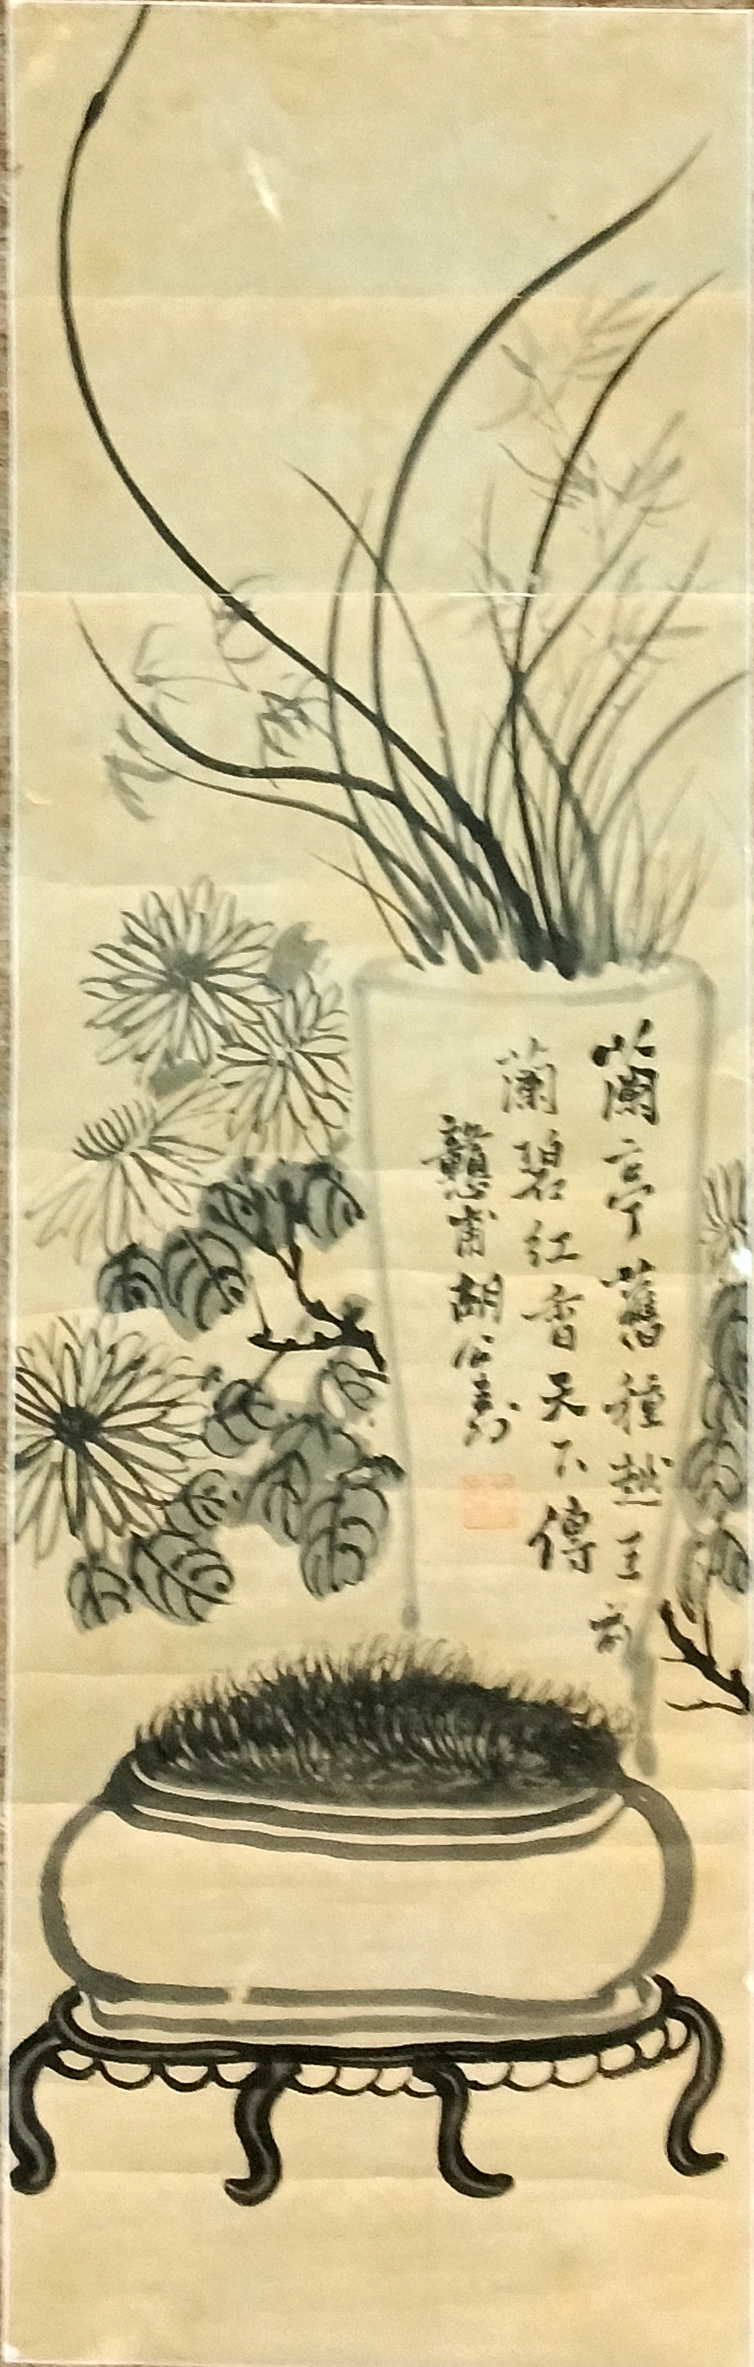 蘭亭舊種越王
蘭碧紅香天下傳
甫胡公壽